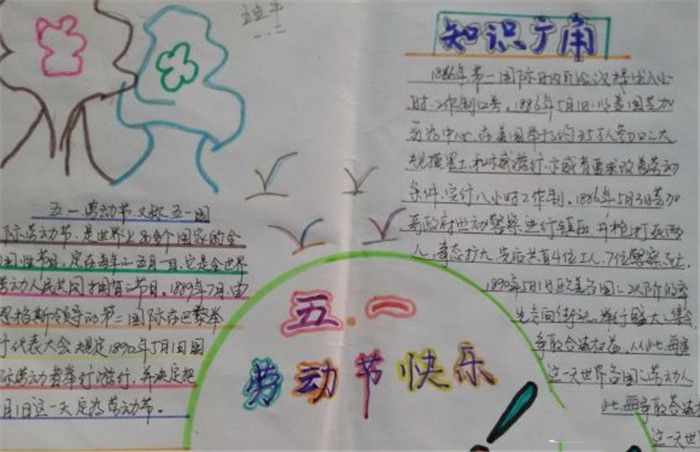 五一劳动节,又称五一国
际劳动节,是世界上80多个国家的全
国性节日,定在每年的五月一日,它是全世界
劳动人民共同拥有的节日。1889年7月,由
恩格斯领导的第二国际在巴黎举
行代表大会规定1890年5月1日国
际劳动者举行游行,并决定把
月1日这一天定为劳动节。
五.一
劳动节快乐
知识广角
1866年第一国际日内瓦会议提出八小
时工作制口号。1886年5月1日,以美国芝加
哥为中心,在美国举行约35万人参加的大
规模罢工和示威游行,示威者要求改善劳动
条件,实行八小时工作制。1886年5月3日芝加
哥政府出动警察进行镇压,开枪打死两
人,事态扩大,先后共有4位工人,7位警察死亡
1890年5月1日欧美各国
走向街头,举行盛大集会
争取合法权益。从此每逢
这一天世界各国的劳动人
此,每争取合法
这一天世